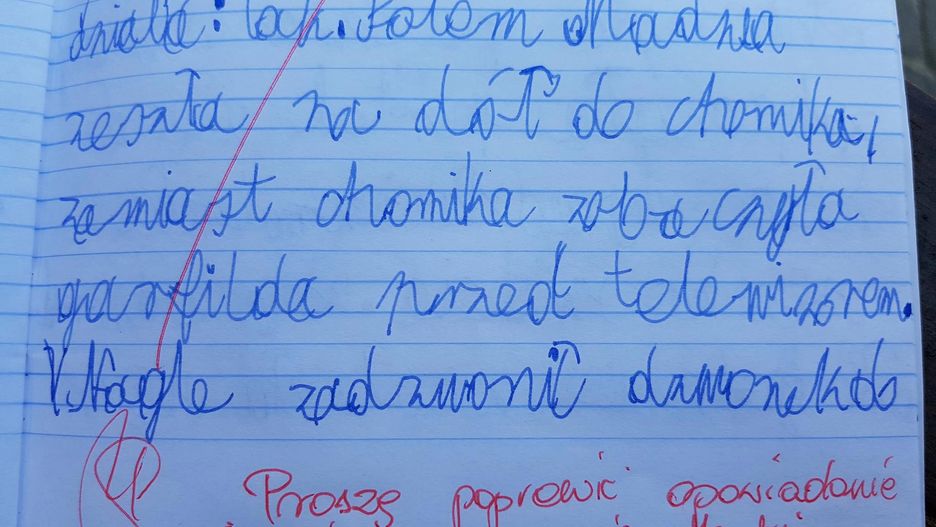 działkę: ach. Potem Madzia
zeszła na dół do chomika,
zamiast chomika zobaczyła
garfilda przed telewizorem.
Nagle zadzwonił dzwonek do
Proszę poprawić opowiadanie